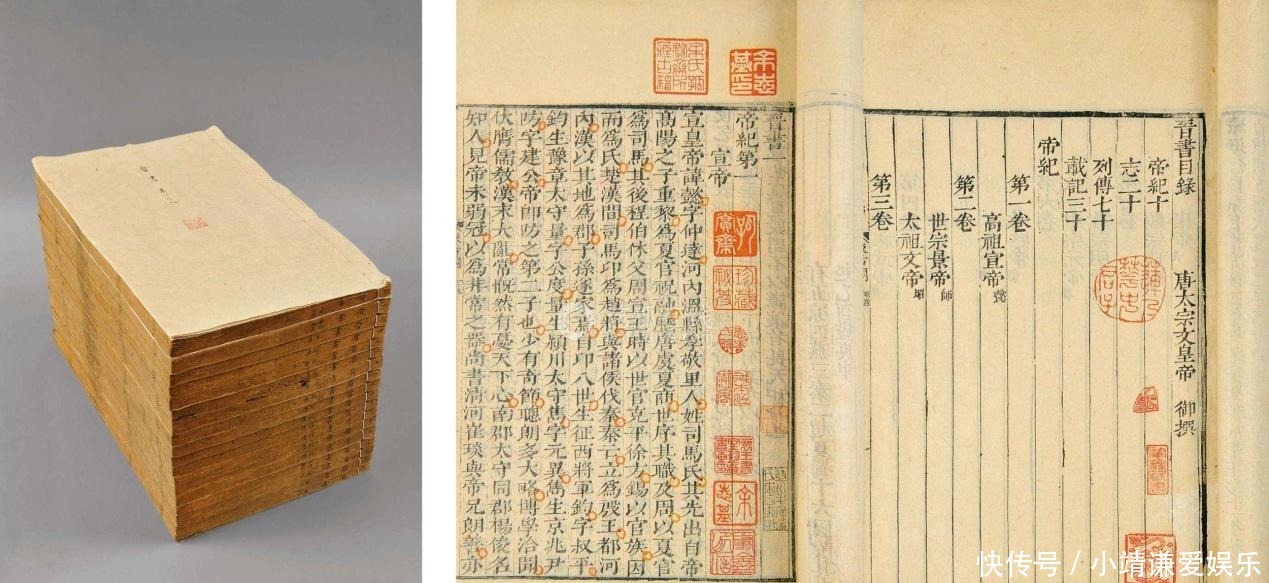 晉書目錄
唐太宗文皇帝 御撰
帝紀十
志二十
列傳七十
載記三十
帝紀
第一卷
高祖宣帝懿
第二卷
世宗景帝師
太祖文帝昭
第三卷
晉書一
帝紀第一
宣帝
宣皇帝諱懿字仲達河內溫縣孝敬里人姓司馬氏其先出自帝
高陽之子重黎爲夏官祝融歷唐虞夏商世序其職及周以夏官
爲司馬其後程伯休父周宣王時以世官克平徐方錫以官族因
而爲氏楚漢間司馬卬爲趙將與諸侯伐秦秦亡立爲殷王都河
內漢以其地爲郡子孫遂家焉自卬八世生征西將軍鈞字叔平
鈞生豫章太守量字公度量生潁川太守雋字元異雋生京兆尹
防字建公帝卽防之第二子也少有奇節聰朗多大略博學洽聞
伏膺儒敎漢末大亂常慨然有憂天下心南郡太守同郡楊俊名
知人見帝未弱冠以爲非常之器尚書清河崔琰與帝兄朗善亦
余志基印
快传号 / 小靖谦爱娱乐